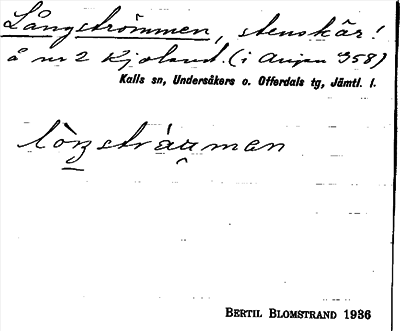 Långströmmen, stenskär!
å nr 2 Kjoland. (i Anjan 358)
Kalls sn, Undersåkers o. Offerdals tg, Jämtl. l.
BERTIL BLOMSTRAND 1936